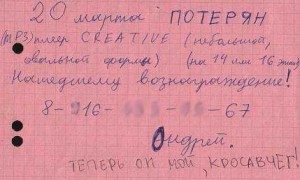 20 марта ПОТЕРЯН
(MP3) плеер CREATIVE (небольшой,
овальной формы) (на 14 или 16
Нашедшему вознаграждение!
8-916- - -67
Андрей.
ТЕПЕРЬ ОН МОЙ, КРОСАВЧЕГ!